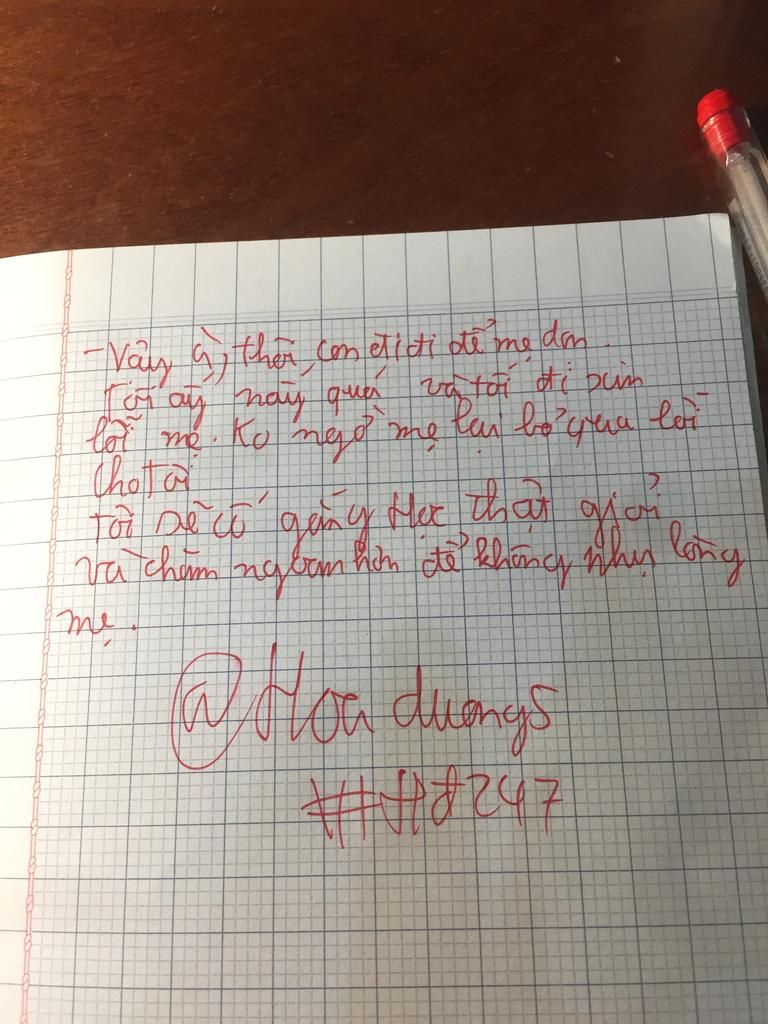 - Vậy à, thôi, con đi đi để mẹ dọn
Tôi áy náy quá và tôi đi xin
lỗi mẹ. Ko ngờ mẹ lại bỏ qua lỗi
cho tôi
Tôi sẽ cố gắng học thật giỏi
và chăm ngoan hơn để không như lòng
mẹ.
@Hoa duong5
##Hd247